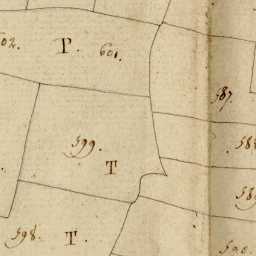 602. P. 601.
587.
599.
T
598. T.
590.